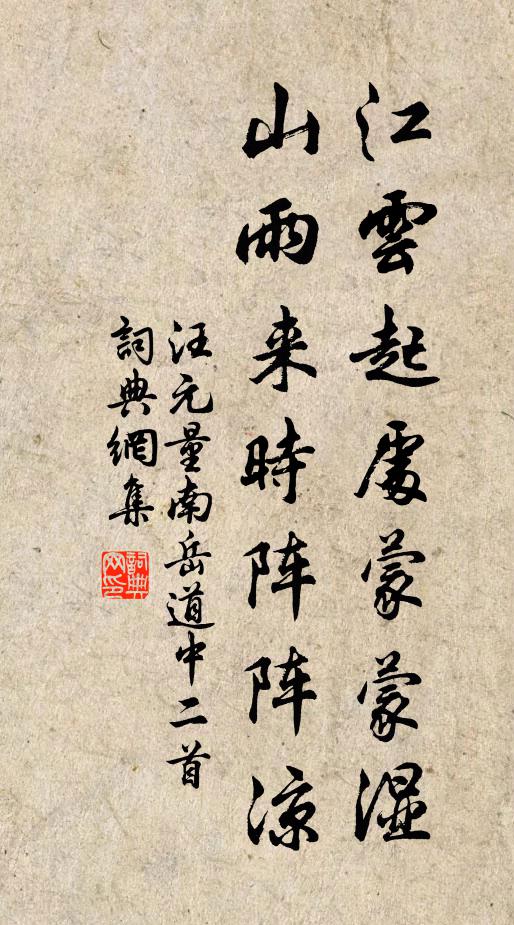 江雲起處蒙蒙湿
山雨来時阵阵凉
汪元量南岳道中二首
詞典網集
詞典网印